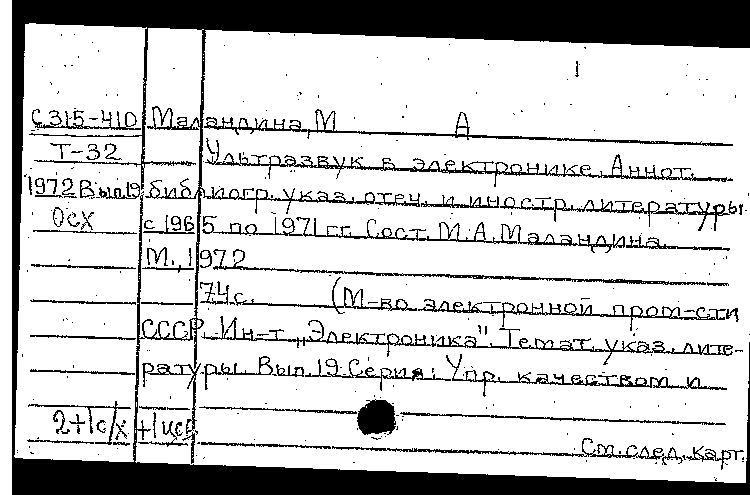 1
С315-410 Маландина, М А
Т-32 Ультразвук в электронике. Аннот.
1972 Вып.19 библиогр. указ. отеч. и иностр. литературы
ОСХ с 1965 по 1971 гг. Сост. М.А. Маландина.
М., 1972
74 с. (М-во электронной пром-сти
СССР. Ин-т „Электроника". Темат. указ. лите-
ратуры. Вып. 19. Серия: Упр. качеством и
2+1с/х +1
См. след. карт.